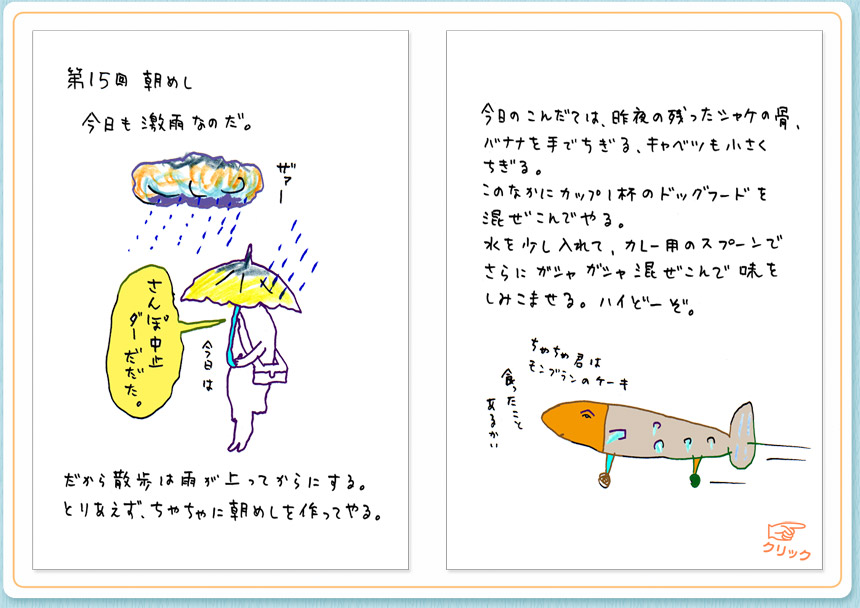 第15回 朝めし
今日も激雨なのだ。
ザァー
さんぽ中止
ダーだだた。
今日は
だから散歩は雨が上ってからにする。
とりあえず、ちゃちゃに朝めしを作ってやる。
今日のこんだては、昨夜の残ったシャケの骨、
バナナを手でちぎる、キャベツも小さく
ちぎる。
このなかにカップ1杯のドッグフードを
混ぜこんでやる。
水を少し入れて、カレー用のスプーンで
さらにガシャガシャ混ぜこんで味を
しみこませる。ハイどーぞ。
ちゃちゃ君は
モンブランのケーキ
食ったこと
あるかい
クリック